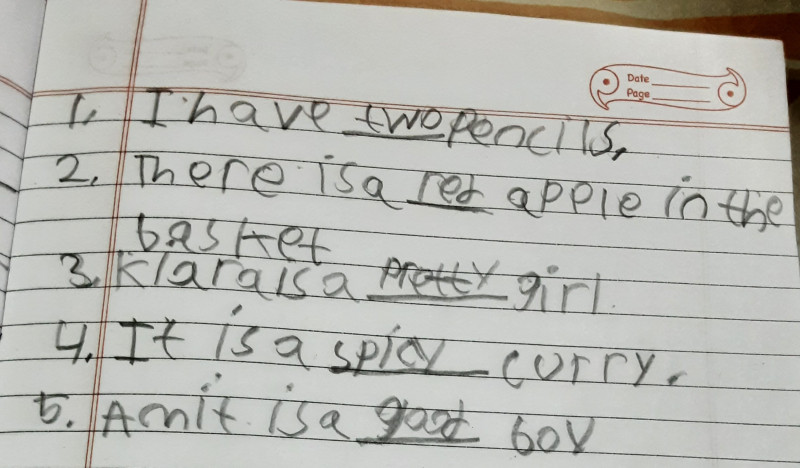 Date
Page
1. I have two pencils.
2. There is a red apple in the
basket
3. Klara is a pretty girl.
4. It is a spicy curry.
5. Amit is a good boy